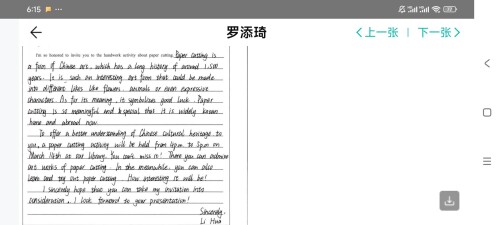 6:15
罗添琦
上一张 | 下一张
I'm so honored to invite you to the handwork activity about paper cutting. Paper cutting is
a form of Chinese art, which has a long history of around 1,500
years. It is such an interesting art form that could be made
into different like flowers, animals or even expressive
characters. As for its meaning, it symbolises good luck. Paper
cutting is so meaningful and special that it is widely known
home and abroad now.
To offer a better understanding of Chinese cultural heritage to
you, a paper cutting activity will be held from 4pm to 5pm on
March 14th at our library. You can't miss it! There you can admire
art works of paper cutting. In the meanwhile, you can also
learn and try out paper cutting. How interesting it will be!
I sincerely hope that you can take my invitation into
consideration. I look forward to your presentation!
Sincerely,
Li Hua